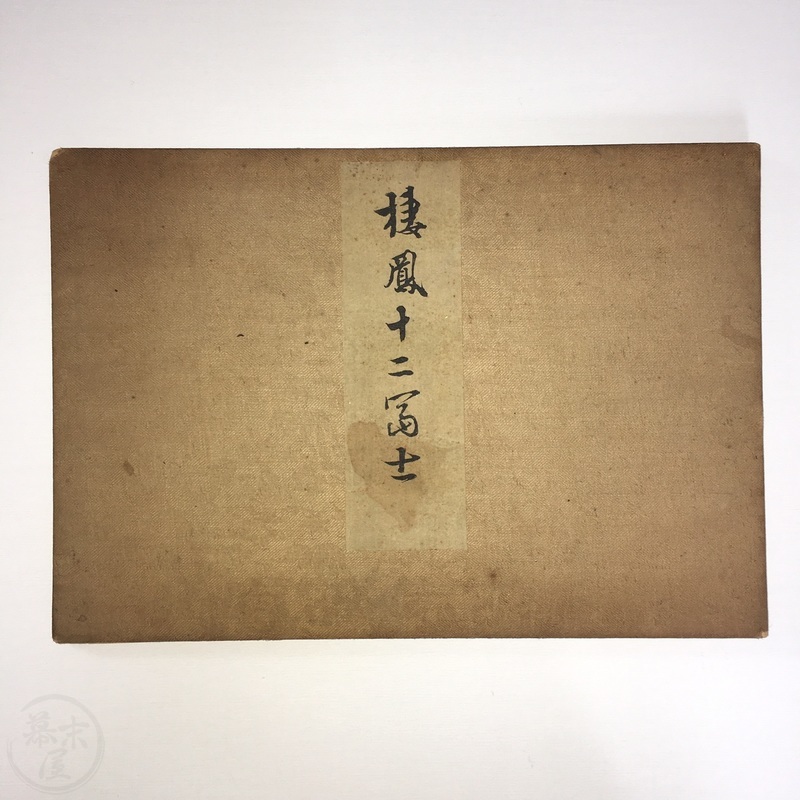 棲鳳十二冨士
幕末屋